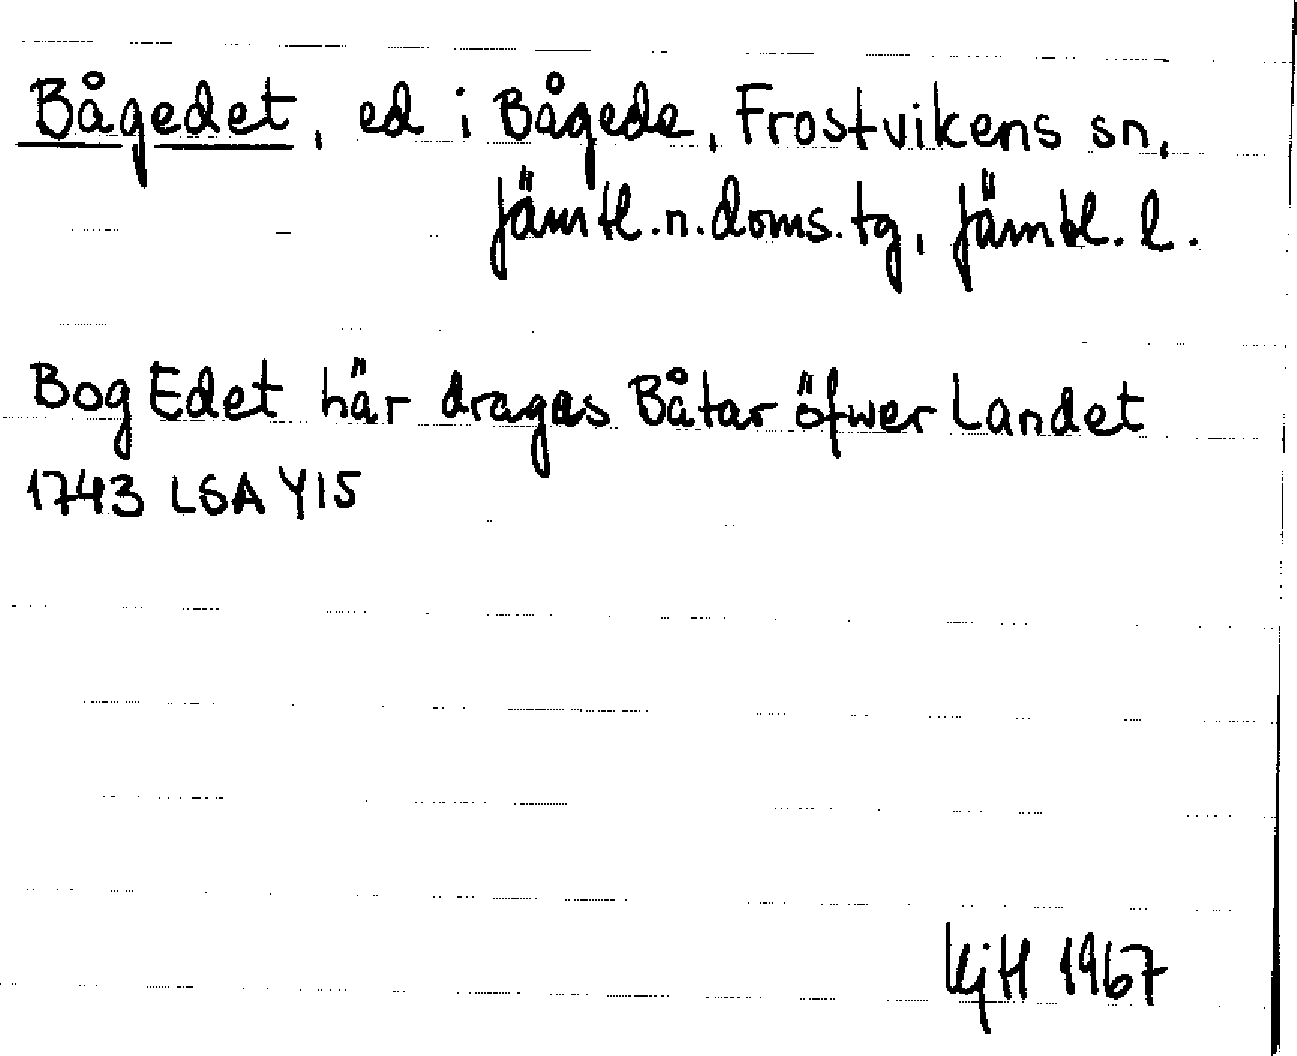 Bågedet, ed i Bågede, Frostvikens sn,
Jämtl.n.doms.tg, Jämtl. l.
Bog Edet här dragas Båtar öfwer Landet
1743 LSA Y15
KjH 1967